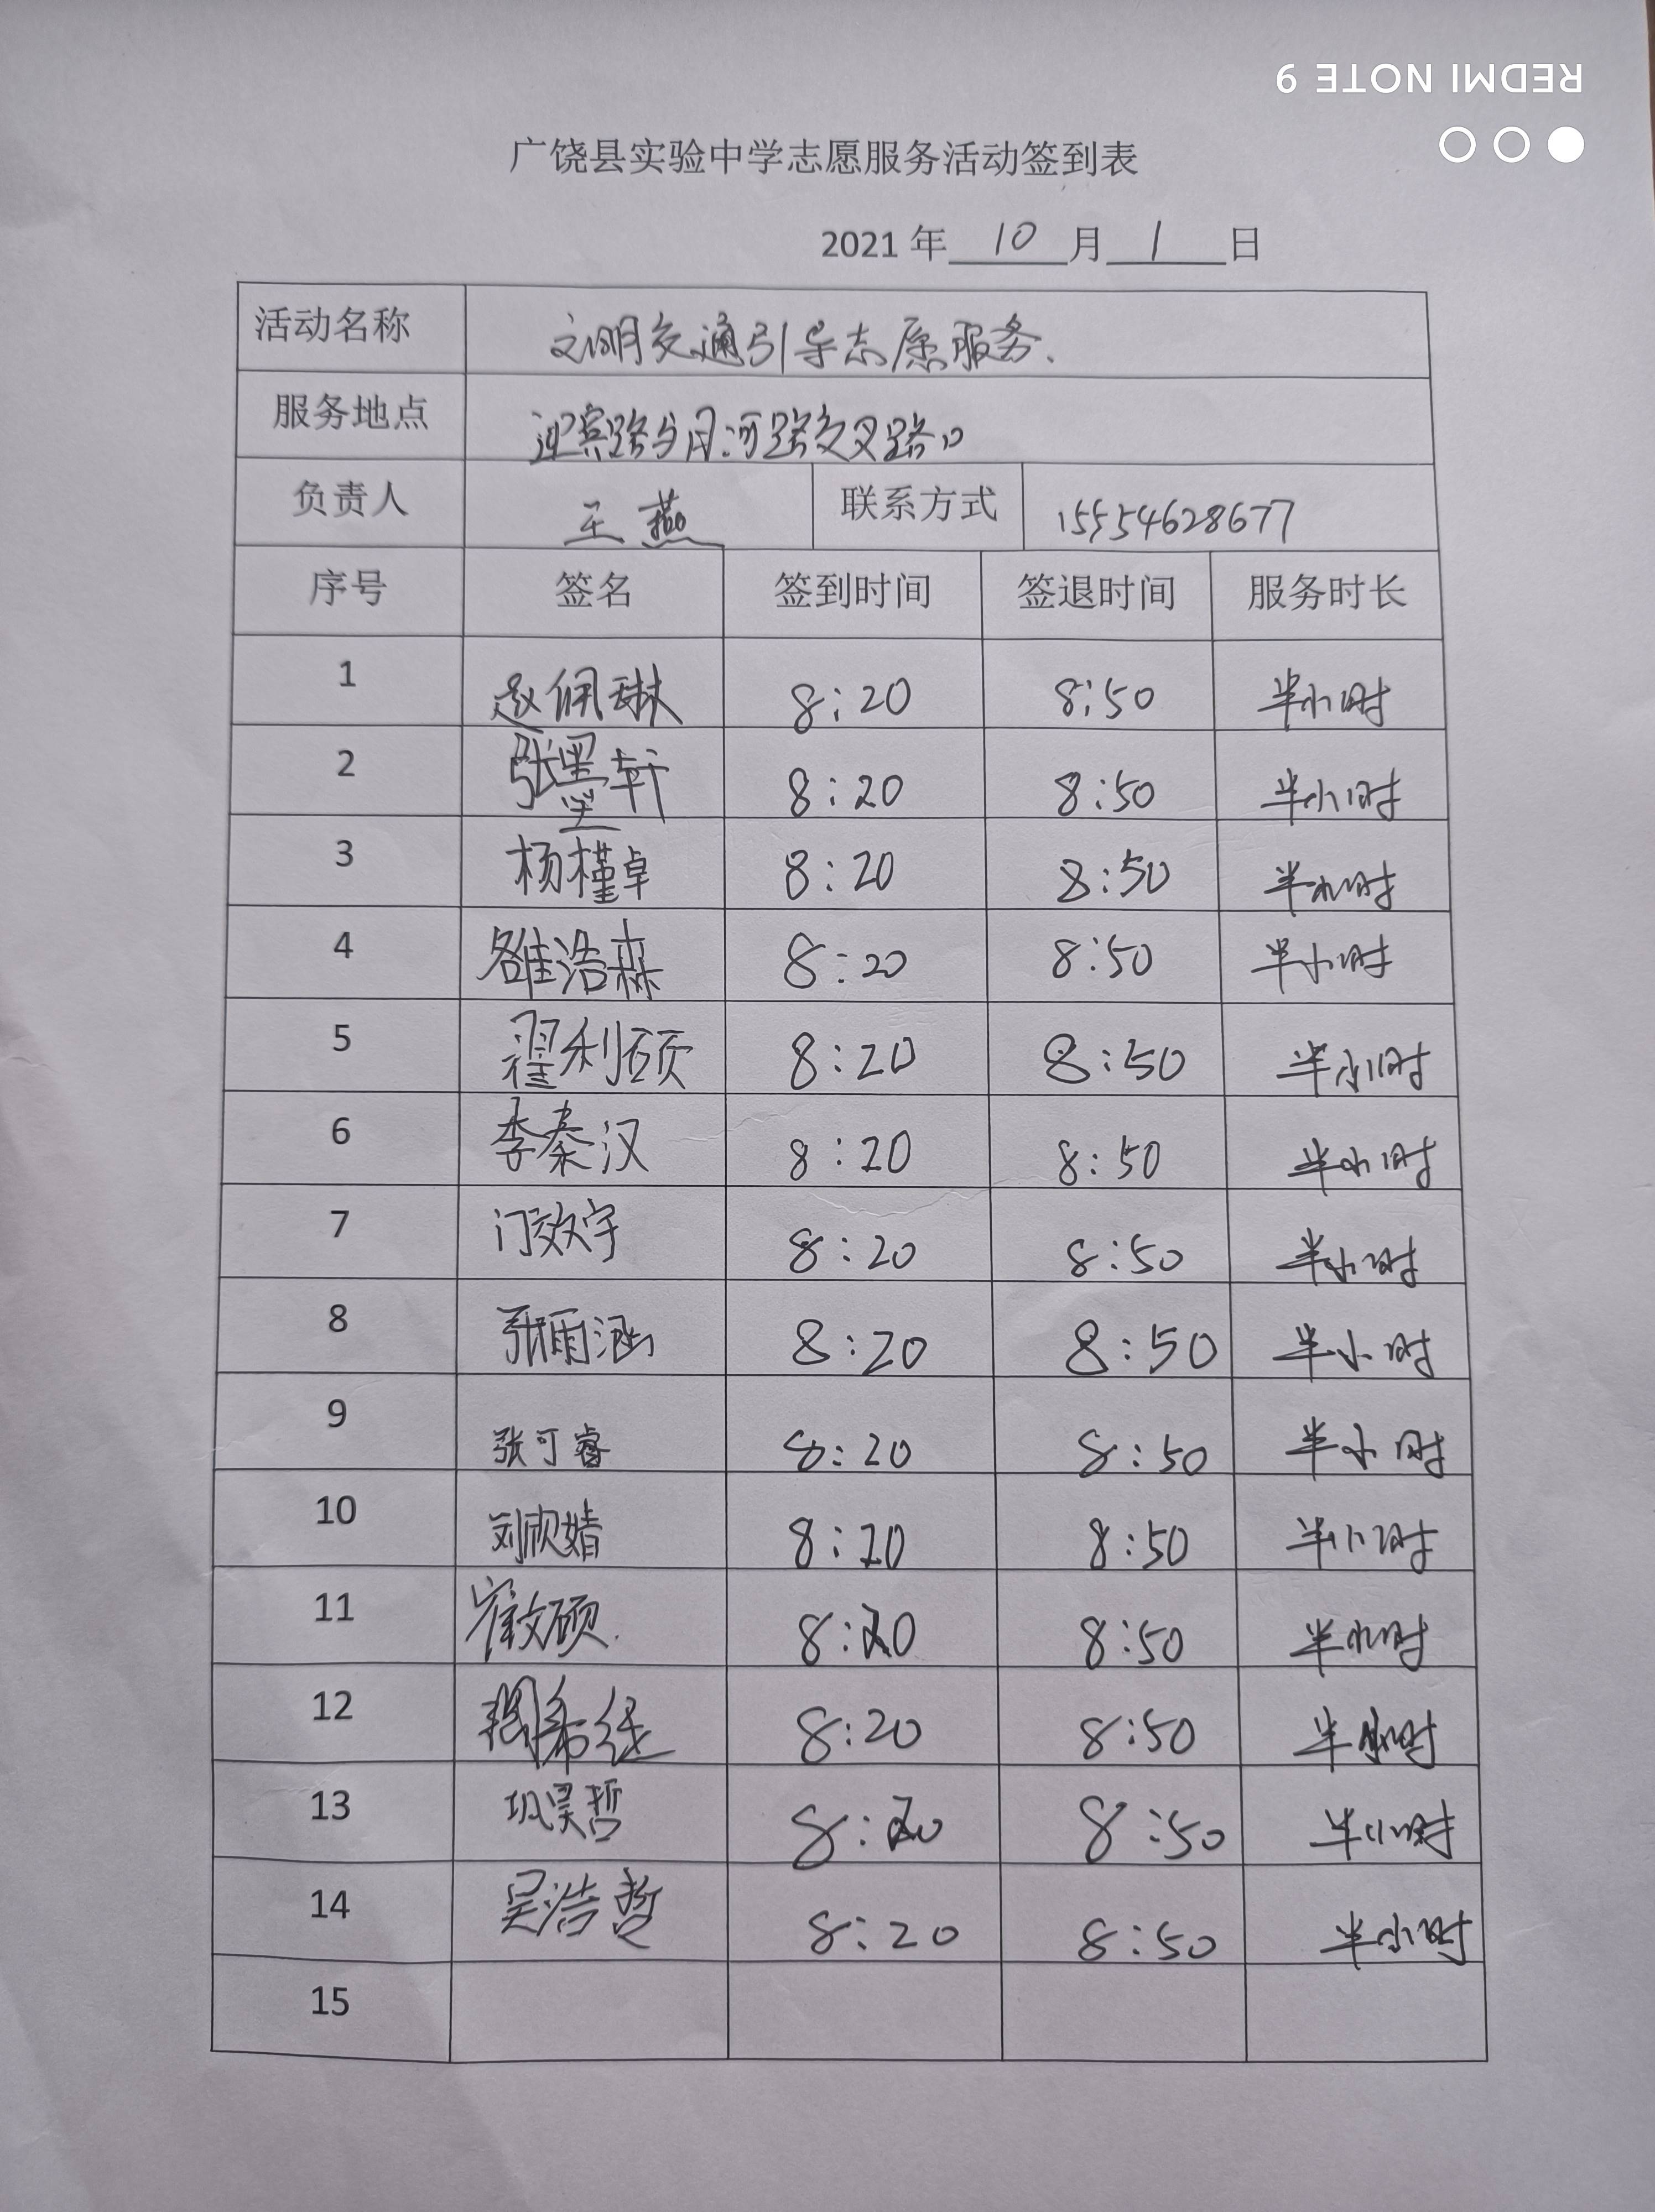 REDMI NOTE 9
广饶县实验中学志愿服务活动签到表
2021 年 10 月 1 日
活动名称 文明交通引导志愿服务.
服务地点 迎宾路与月河路交叉路口
负责人 王燕 联系方式 15554628677
序号 签名 签到时间 签退时间 服务时长
1 赵佩琳 8:20 8:50 半小时
2 张墨轩 8:20 8:50 半小时
3 杨槿卓 8:20 8:50 半小时
4 雒浩森 8:20 8:50 半小时
5 翟利硕 8:20 8:50 半小时
6 李秦汉 8:20 8:50 半小时
7 门效宇 8:20 8:50 半小时
8 张雨涵 8:20 8:50 半小时
9 张可睿 8:20 8:50 半小时
10 刘欣婧 8:20 8:50 半小时
11 崔文硕. 8:20 8:50 半小时
12 8:20 8:50 半小时
13 巩昊哲 8:20 8:50 半小时
14 吴浩哲 8:20 8:50 半小时
15